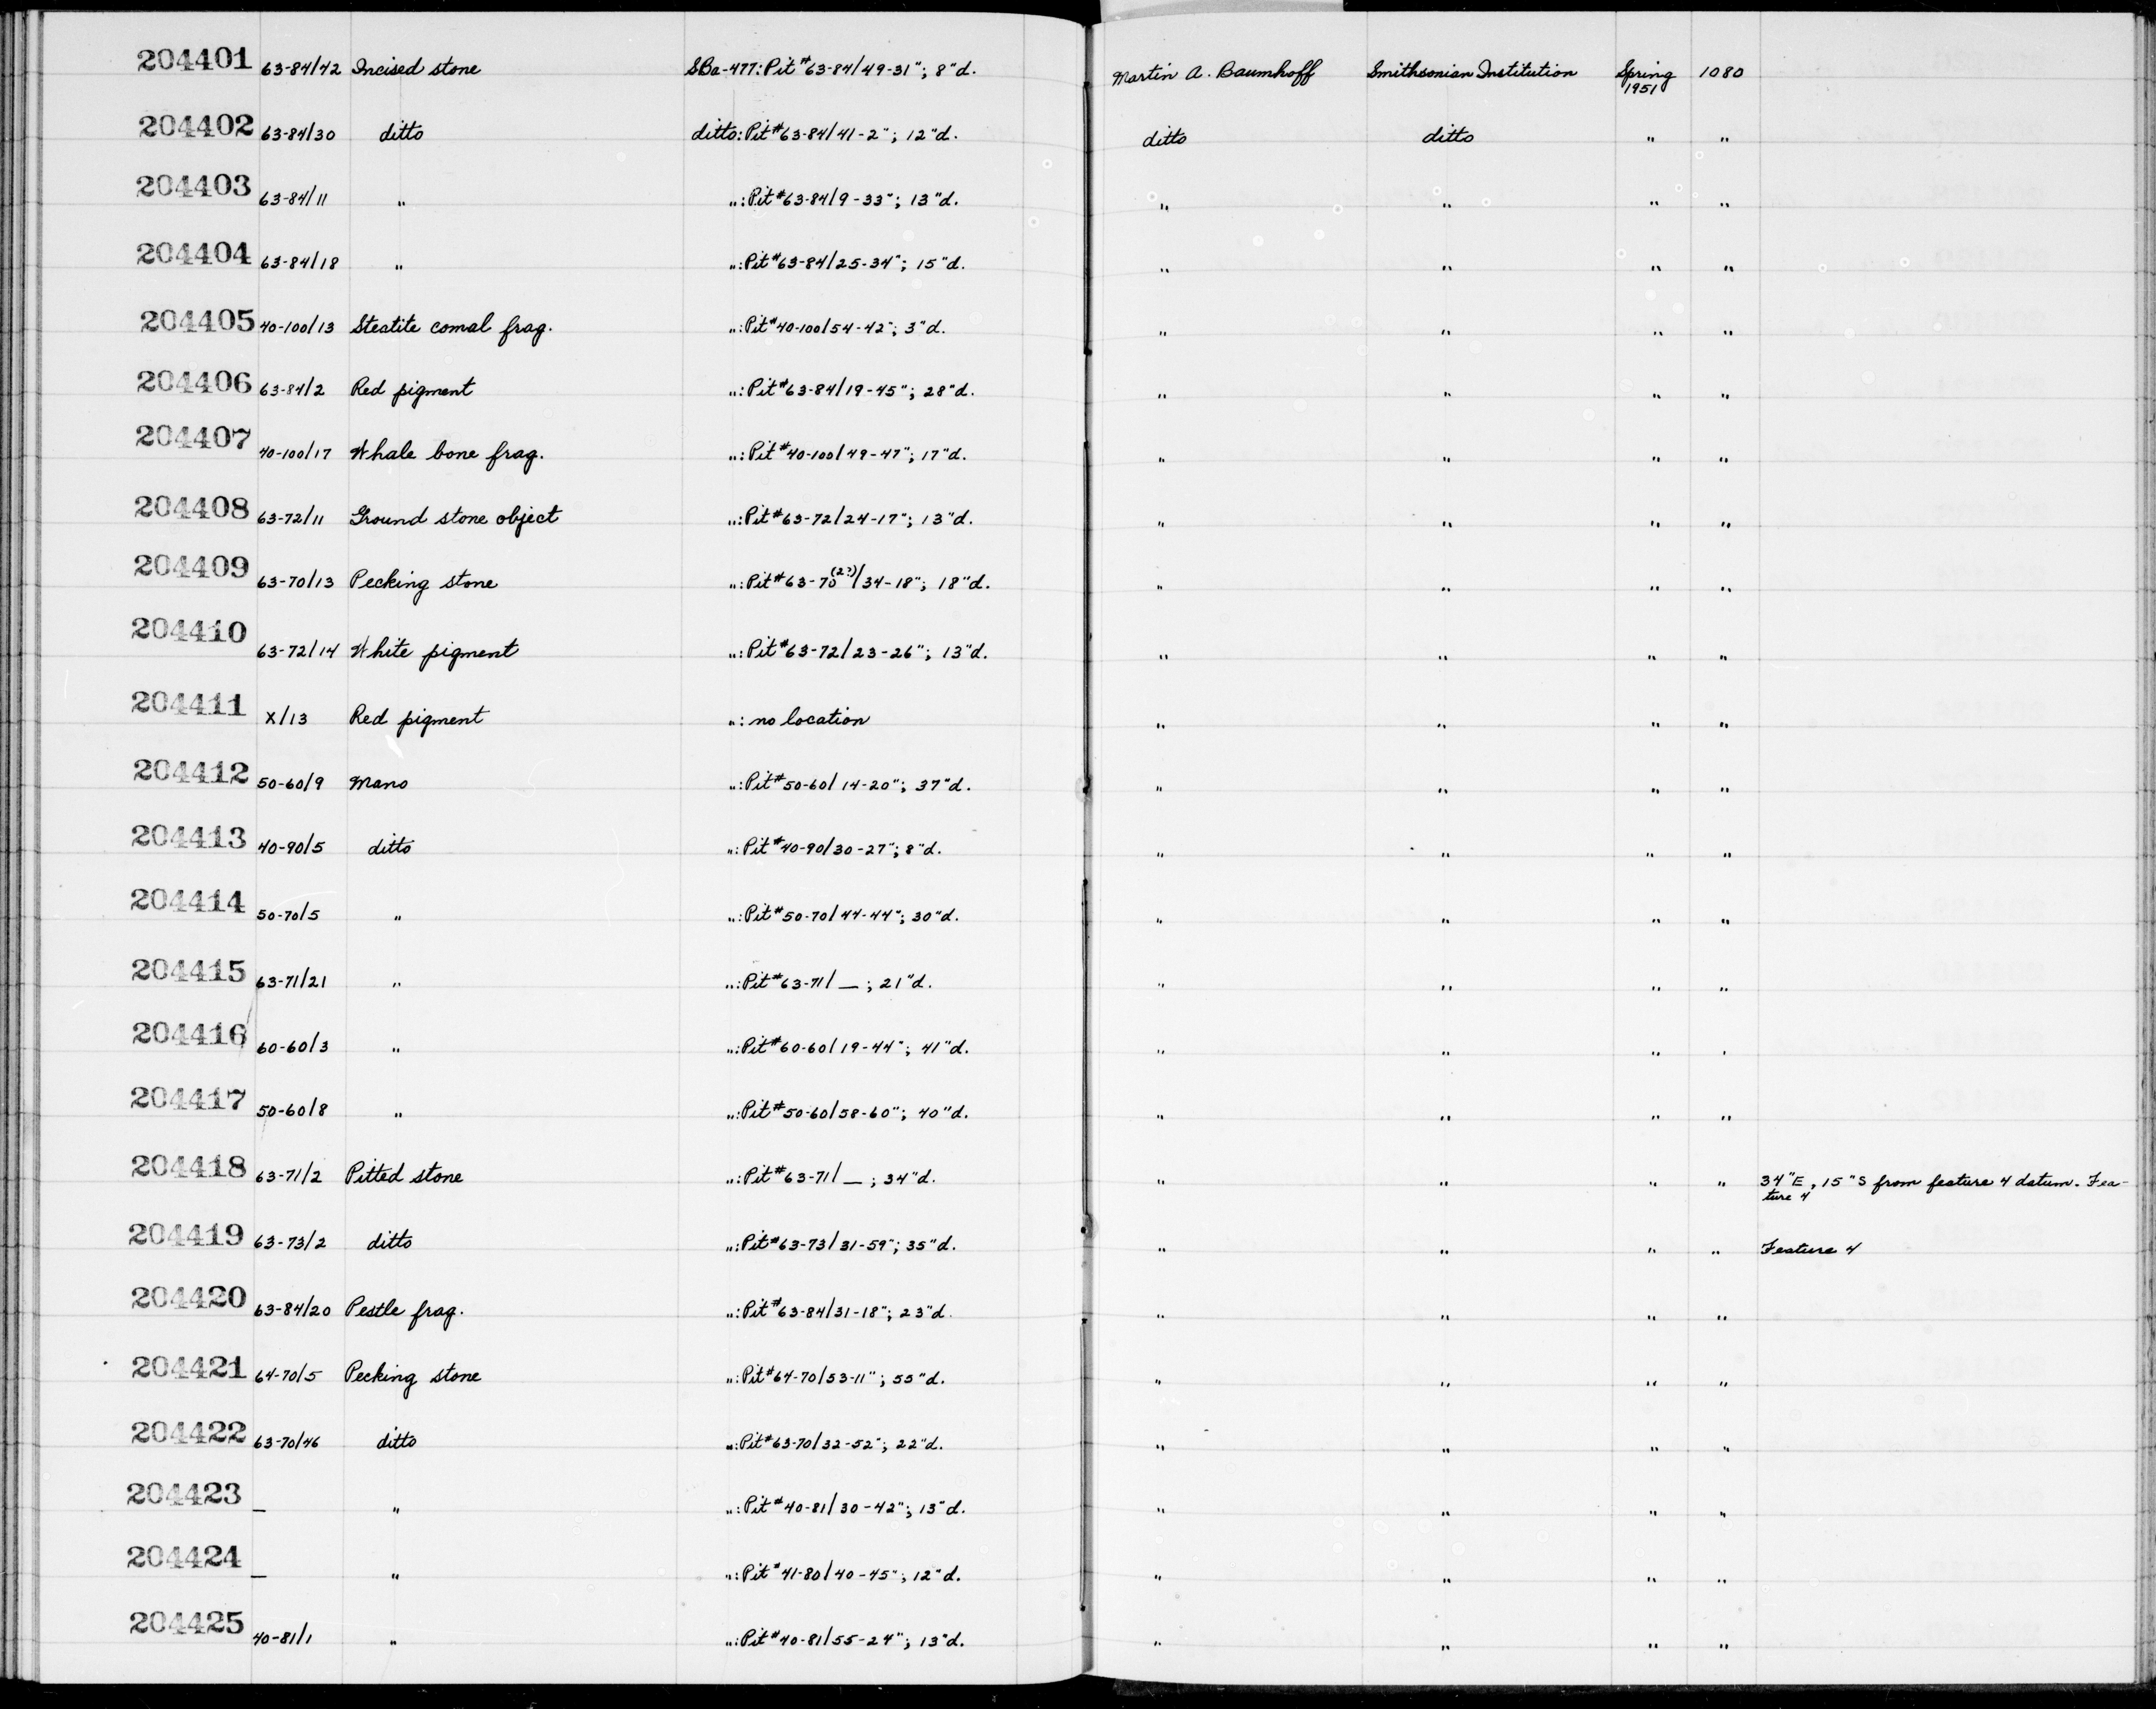 204401 63-84/42 Incised stone SBa-477: Pit #63-84/49-31"; 8"d. Martin A. Baumhoff Smithsonian Institution Spring 1951 1080
204402 63-84/30 ditto ditto: Pit #63-84/41-2"; 12"d. ditto ditto " "
204403 63-84/11 " ": Pit #63-84/9-33"; 13"d. " " " "
204404 63-84/18 " ": Pit #63-84/25-34"; 15"d. " " " "
204405 40-100/13 Steatite comal frag. ": Pit #40-100/54-42"; 3"d. " " " "
204406 63-84/2 Red pigment ": Pit #63-84/19-45"; 28"d. " " " "
204407 40-100/17 Whale bone frag. ": Pit #40-100/49-47"; 17"d. " " " "
204408 63-72/11 Ground stone object ": Pit #63-72/24-17"; 13"d. " " " "
204409 63-70/13 Pecking stone ": Pit #63-70(2?)/34-18"; 18"d. " " " "
204410 63-72/14 White pigment ": Pit #63-72/23-26"; 13"d. " " " "
204411 X/13 Red pigment ": no location " " " "
204412 50-60/9 Mano ": Pit #50-60/14-20"; 37"d. " " " "
204413 40-90/5 ditto ": Pit #40-90/30-27"; 8"d. " " " "
204414 50-70/5 " ": Pit #50-70/44-44"; 30"d. " " " "
204415 63-71/21 " ": Pit #63-71/ — ; 21"d. " " " "
204416 60-60/3 " ": Pit #60-60/19-44"; 41"d. " " " "
204417 50-60/8 " ": Pit #50-60/58-60"; 40"d. " " " "
204418 63-71/2 Pitted stone ": Pit #63-71/ — ; 34"d. " " " " 34"E, 15"S from feature 4 datum. Fea-
ture 4
204419 63-73/2 ditto ": Pit #63-73/31-59"; 35"d. " " " " Feature 4
204420 63-84/20 Pestle frag. ": Pit #63-84/31-18"; 23"d. " " " "
204421 64-70/5 Pecking stone ": Pit #64-70/53-11"; 55"d. " " " "
204422 63-70/46 ditto ": Pit #63-70/32-52"; 22"d. " " " "
204423 — " ": Pit #40-81/30-42"; 13"d. " " " "
204424 — " ": Pit #41-80/40-45"; 12"d. " " " "
204425 40-81/1 " ": Pit #40-81/55-24"; 13"d. " " " "